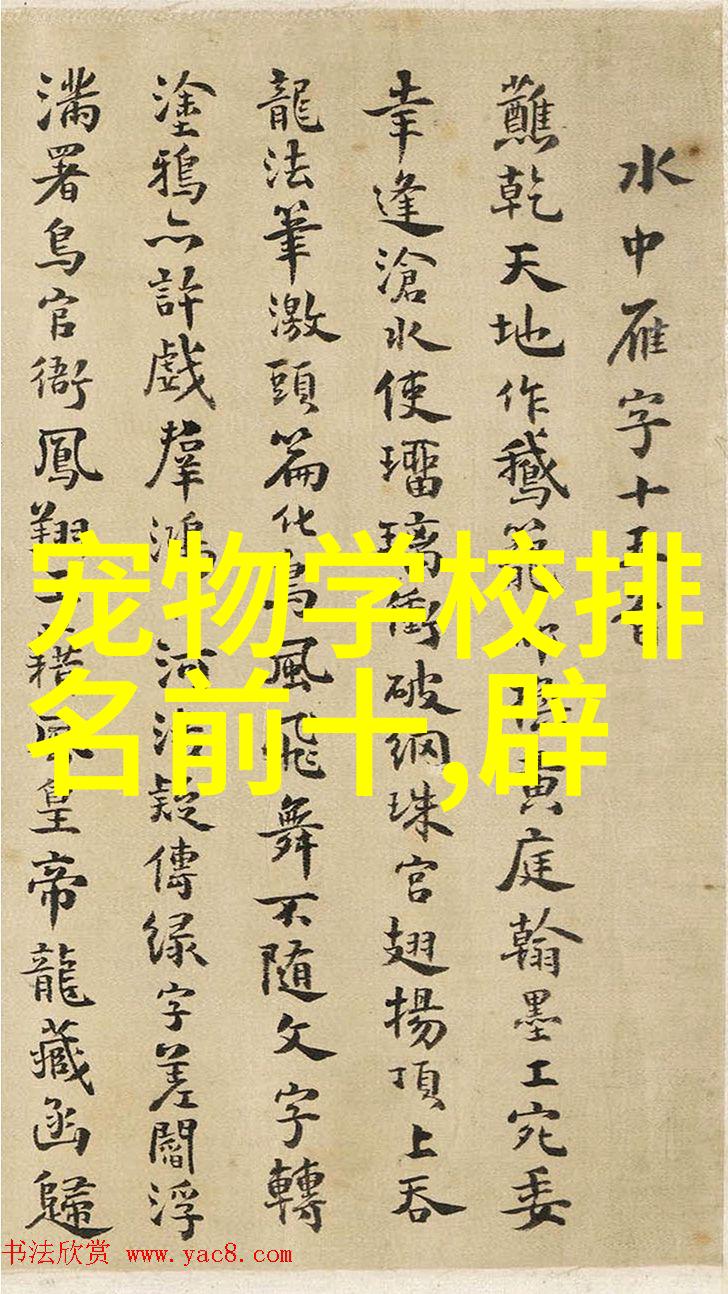 水中雁字十五首
蘸乾天地作鵝箋黃庭翰墨工宛委
幸逢滄水使璢璃衝破網珠宮翅揚頂上吞
龍法筆激頭篇化鳥風飛舞不隨文字轉
塗鴉亦許戲羣鴻河洛疑傳緑字差閻浮
滿署鳥官衙鳳翔鳳皇帝龍藏函歸
宠物学校排
名前十,辟
书法欣赏 www.yac8.com